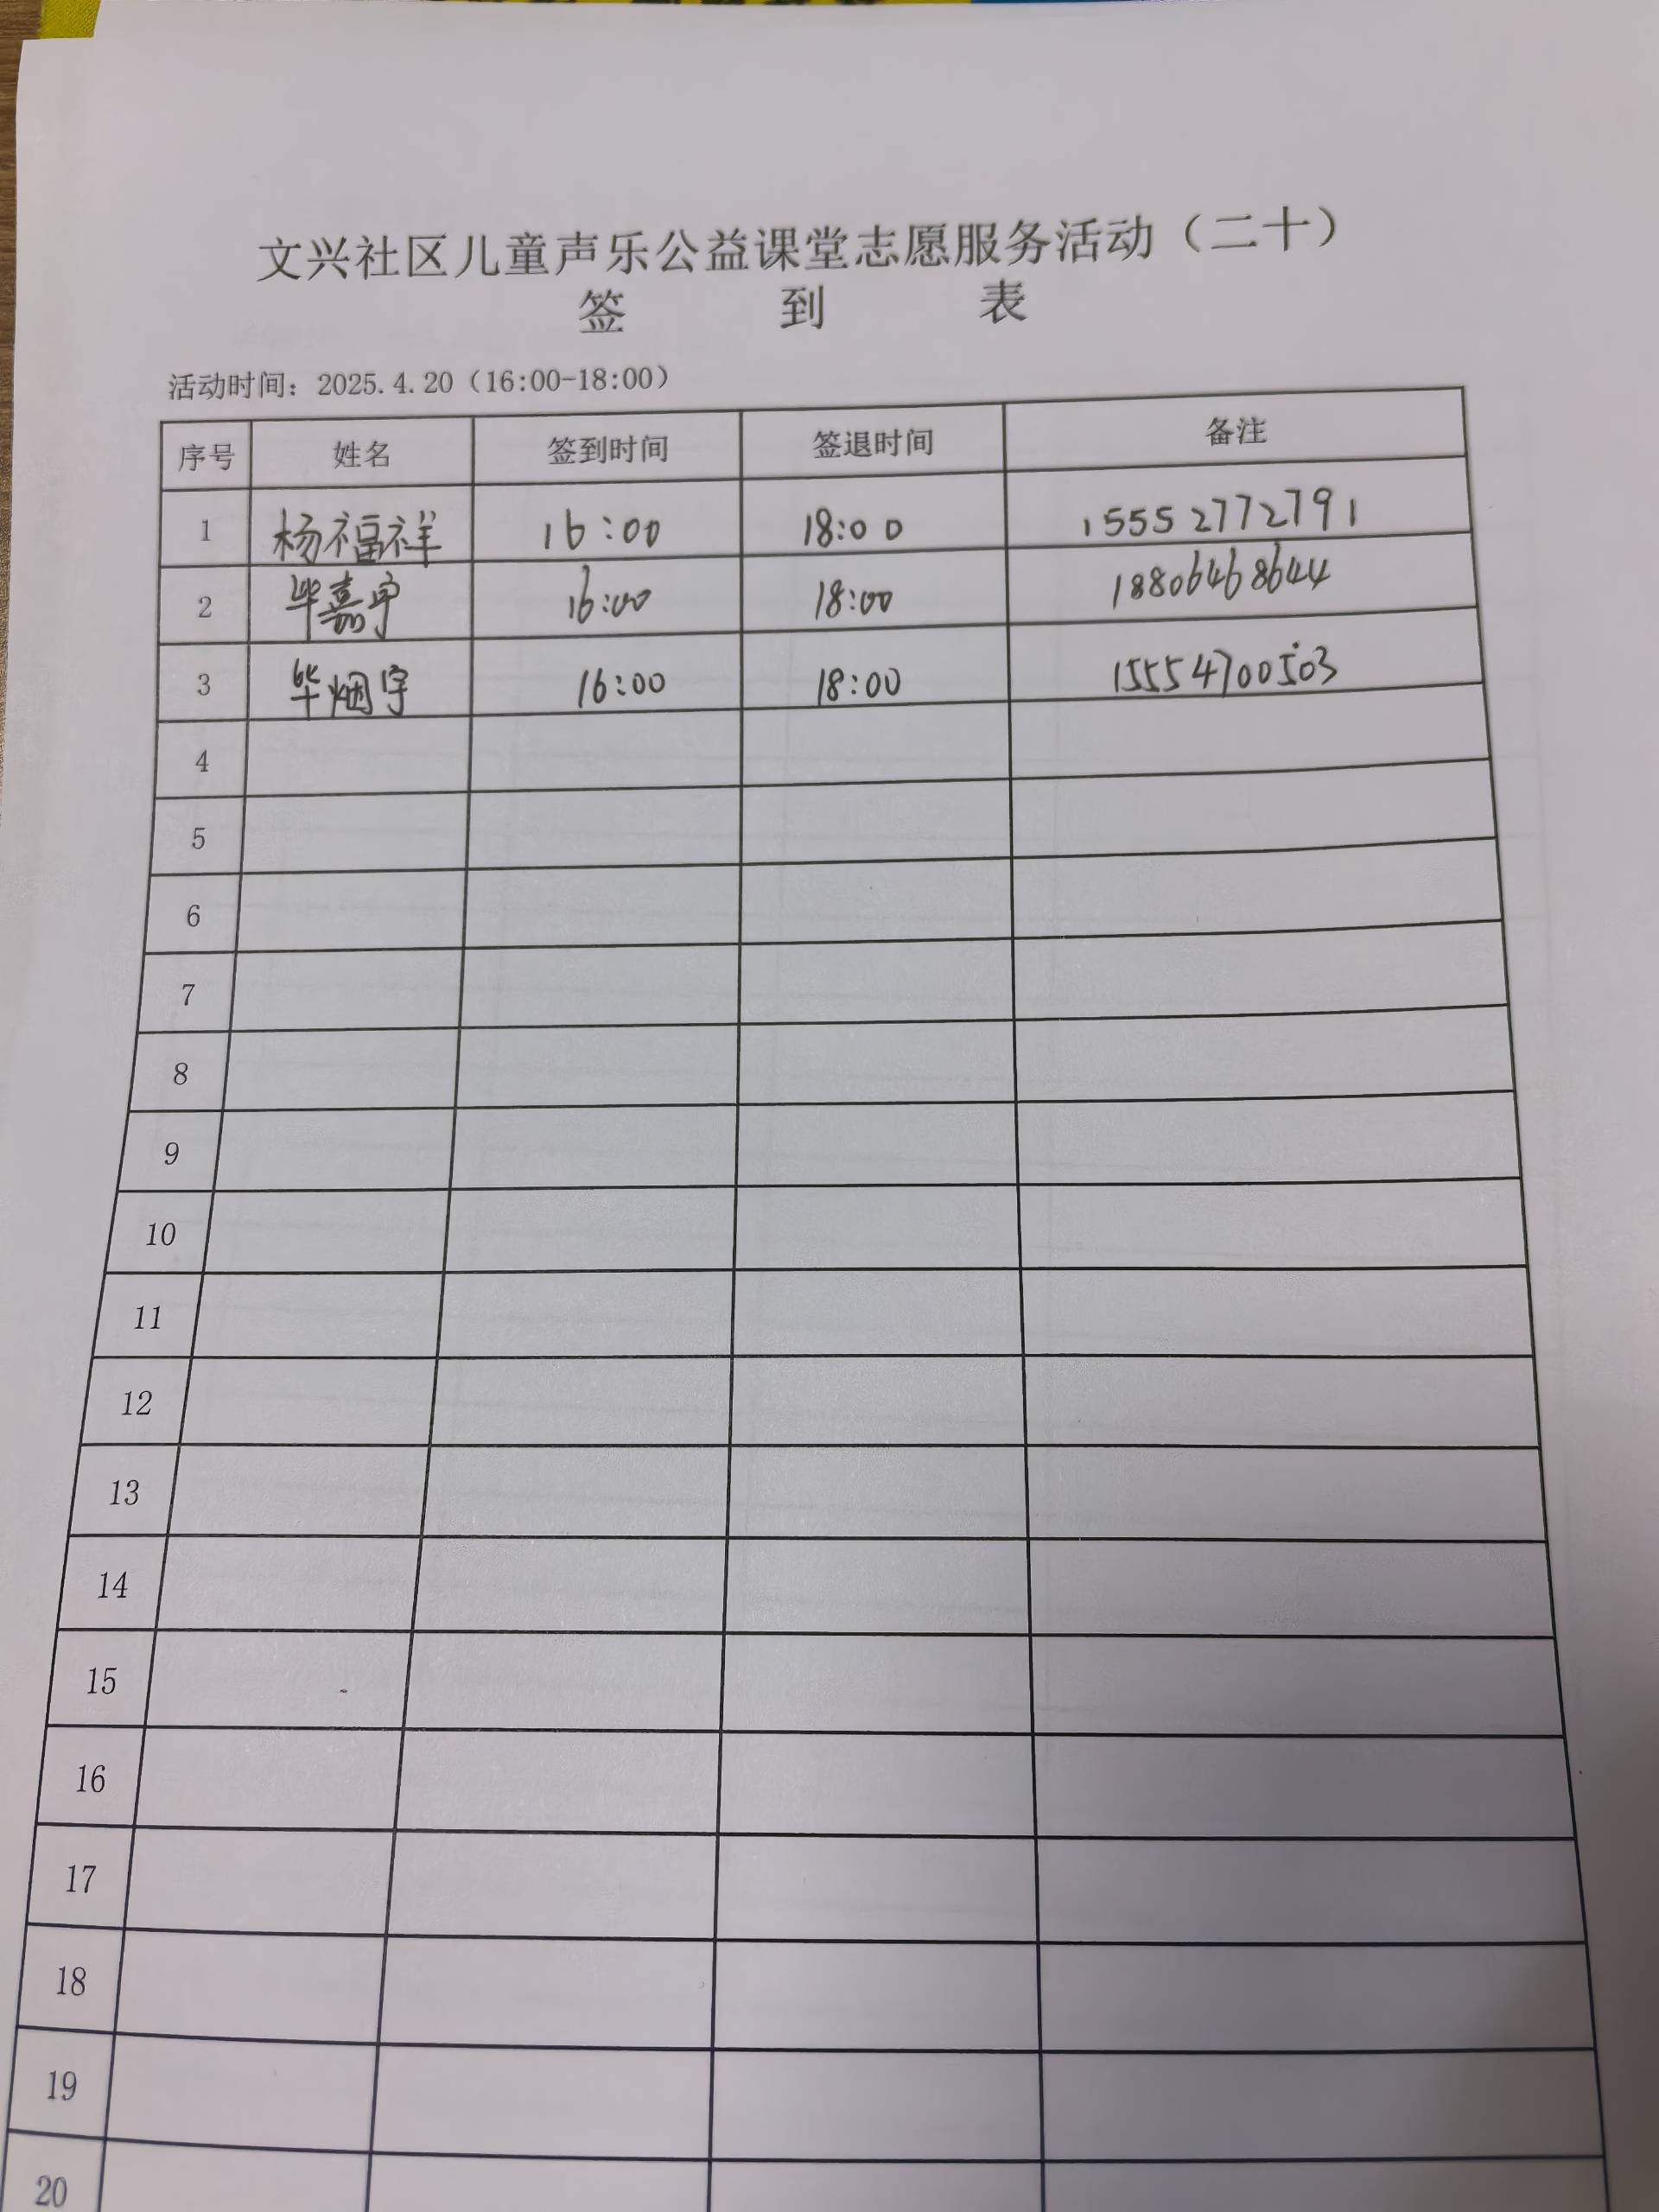 文兴社区儿童声乐公益课堂志愿服务活动（二十）
签 到 表
活动时间：2025.4.20（16:00-18:00）
序号 姓名 签到时间 签退时间 备注
1 杨福祥 16:00 18:00 15552772791
2 毕嘉宇 16:00 18:00 18806468644
3 毕烟宇 16:00 18:00 15554700503
4
5
6
7
8
9
10
11
12
13
14
15
16
17
18
19
20